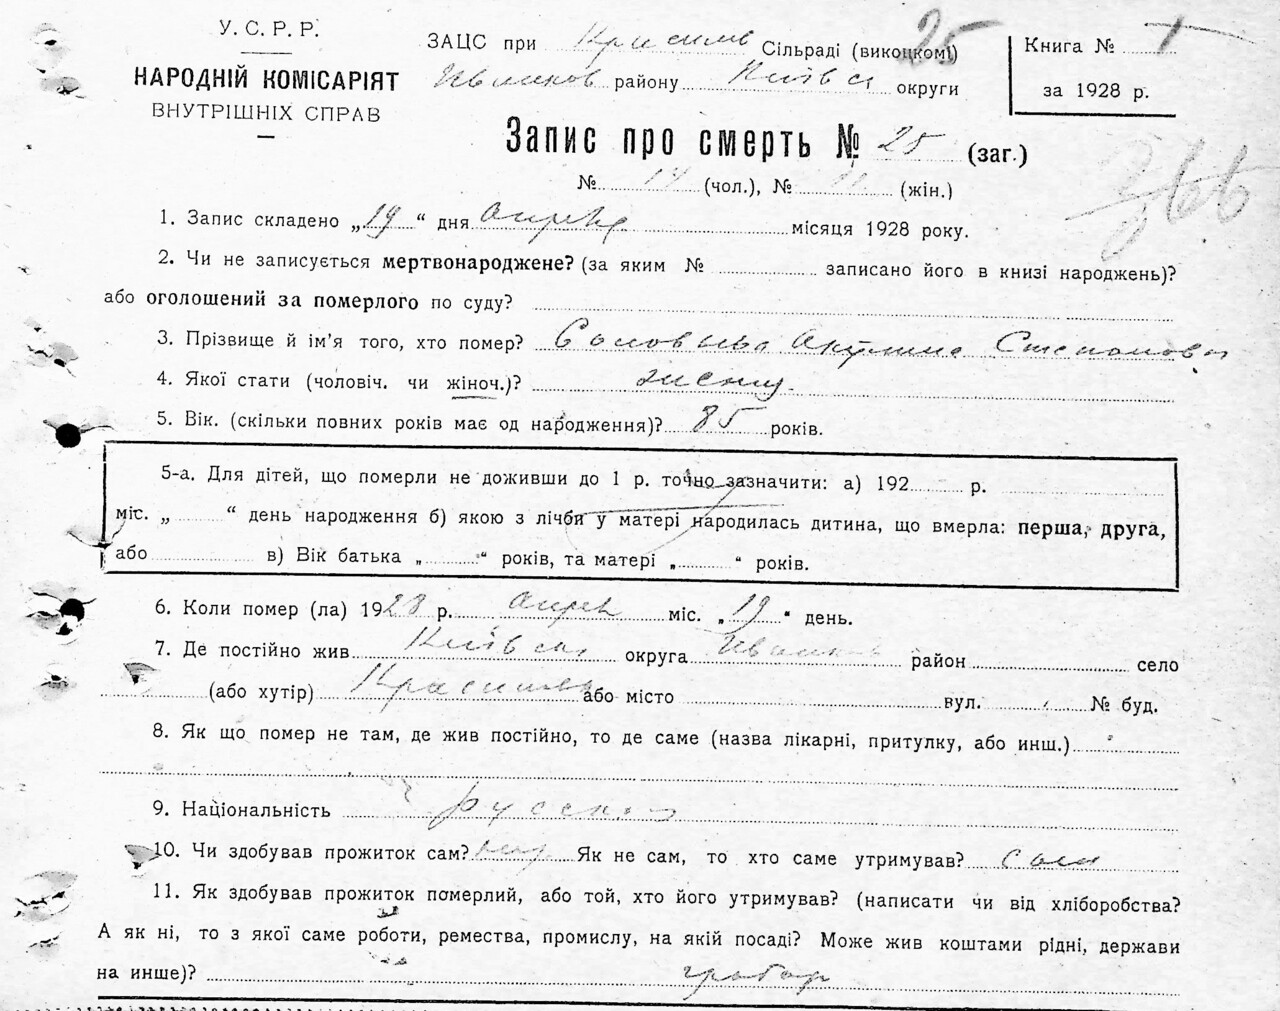 У. С. Р. Р.
НАРОДНІЙ КОМІСАРІЯТ
ВНУТРІШНІХ СПРАВ
25
ЗАЦС при Сільраді (викоцкомі)
району Київськ округи
Книга № 1
за 1928 р.
Запис про смерть № 25 (заг.)
№ 14 (чол.), № 11 (жін.)
1. Запис складено „19“ дня Апреля місяця 1928 року.
2. Чи не записується мертвонароджене? (за яким № записано його в книзі народжень)?
або оголошений за померлого по суду?
3. Прізвище й ім'я того, хто помер? Соловьева Акулина Степановн
4. Якої стати (чоловіч. чи жіноч.)?
5. Вік. (скільки повних років має од народження)? 85 років.
5-а. Для дітей, що померли не доживши до 1 р. точно зазначити: а) 192 р.
міс. „ “ день народження б) якою з лічби у матері народилась дитина, що вмерла: перша, друга,
або в) Вік батька „ “ років, та матері „ “ років.
6. Коли помер (ла) 1928 р. Апрел міс. „19“ день.
7. Де постійно жив Київськ округа район село
(або хутір) або місто вул. № буд.
8. Як що помер не там, де жив постійно, то де саме (назва лікарні, притулку, або инш.)
9. Національність русская
10. Чи здобував прожиток сам? Як не сам, то хто саме утримував? сын
11. Як здобував прожиток померлий, або той, хто його утримував? (написати чи від хліборобства?
А як ні, то з якої саме роботи, ремества, промислу, на якій посаді? Може жив коштами рідні, держави
на инше)?